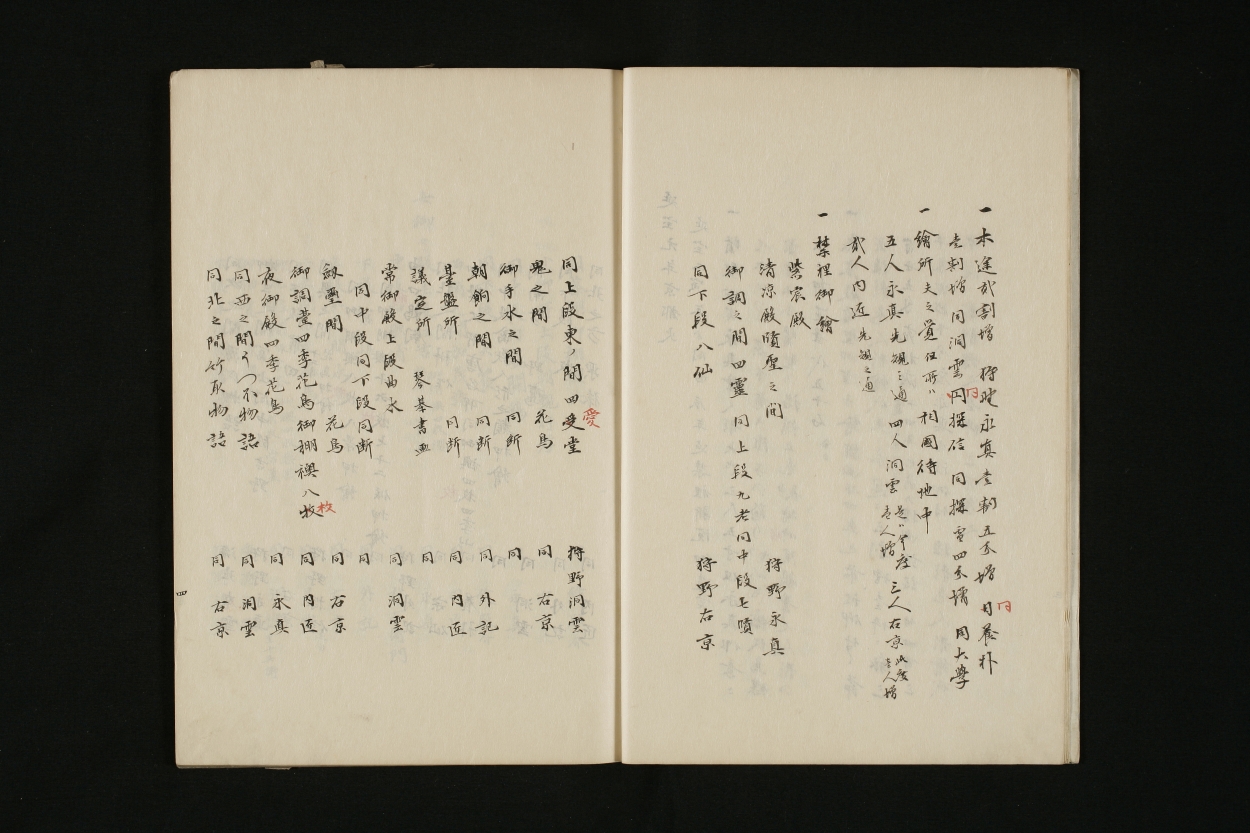 一 木途弐割増 狩野永真 壱割五分増 同養朴
同
壱割増 同洞雲 同探信 同探雪四分増 同大學
同
一 繪所夫之覚但所ハ相國待地中
五人永真 先規之通 四人洞雲 是ハ今度壱人増 三人右京 此度壱人増
弐人内近 先規之通
一 禁裡御繪
紫宸殿
清凉殿賾聖之間 狩野永真
御調之間四靈 同上段九老同中段七賾
同下段八仙 狩野右京
同上段東ノ間四愛堂 狩野洞雲
愛
鬼之間 花鳥 同 右京
御手水之間 同断 同
朝餉之間 同断 同 外記
臺盤所 同断 同 内近
議定所 琴棊書画 同
常御殿上段曲水 同 洞雲
同中段同下段同断 同
劔璽間 花鳥 同 右京
御調臺四季花鳥御棚襖八枚 同 内近
枚
夜御殿四季花鳥 同 永真
同西之間うつ不物語 同 洞雲
同北之間竹取物語 同 右京
四